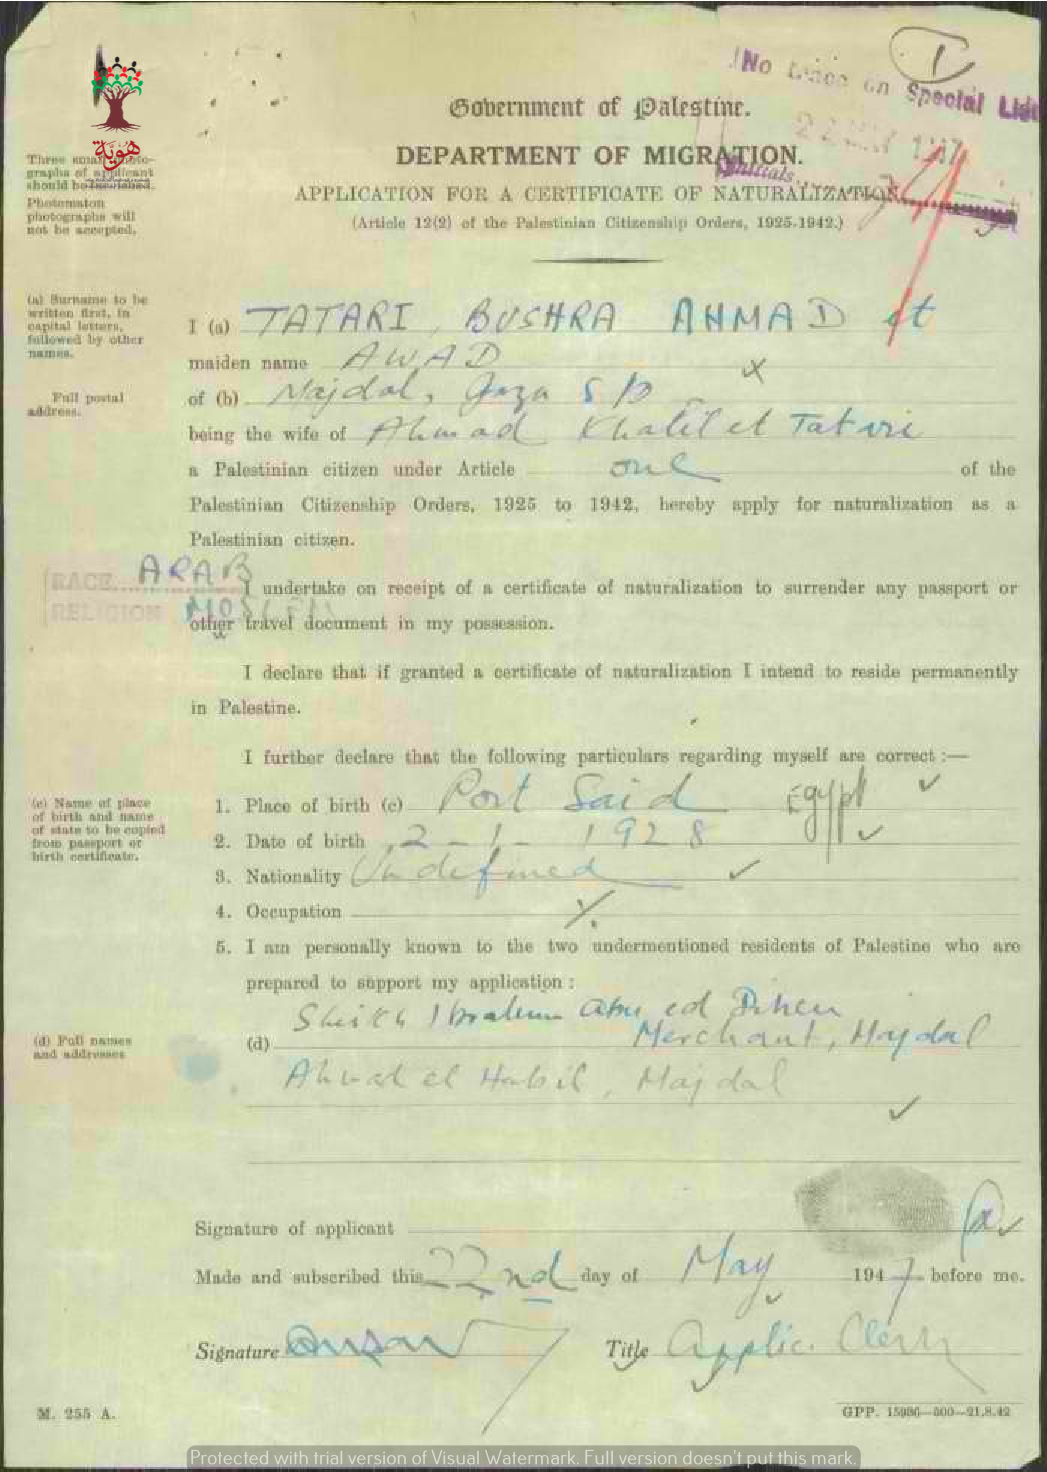 I
No trace on Special List
22 MAY 1947
Initials
هوية
Government of Palestine.
DEPARTMENT OF MIGRATION.
APPLICATION FOR A CERTIFICATE OF NATURALIZATION
(Article 12(2) of the Palestinian Citizenship Orders, 1925-1942.)
Three small photo-
graphs of applicant
should be furnished.
Photomaton
photographs will
not be accepted.
(a) Surname to be
written first, in
capital letters,
followed by other
names.
I (a) TATARI, BUSHRA AHMAD et
maiden name AWAD
Full postal
address.
of (b) Majdal, Gaza S/D
being the wife of Ahmad Khalil et Tatari
a Palestinian citizen under Article one of the
Palestinian Citizenship Orders, 1925 to 1942, hereby apply for naturalization as a
Palestinian citizen.
RACE ARAB
RELIGION MOSLEM
I undertake on receipt of a certificate of naturalization to surrender any passport or
other travel document in my possession.
I declare that if granted a certificate of naturalization I intend to reside permanently
in Palestine.
I further declare that the following particulars regarding myself are correct :—
(c) Name of place
of birth and name
of state to be copied
from passport or
birth certificate.
1. Place of birth (c) Port Said Egypt
2. Date of birth 2-1-1928
3. Nationality Undefined
4. Occupation
5. I am personally known to the two undermentioned residents of Palestine who are
prepared to support my application :
(d) Full names
and addresses
Sheikh Ibrahim Abu ed
(d) Merchant, Majdal
Ahmad el Habil, Majdal
Signature of applicant
Made and subscribed this 22nd day of May 1947 before me.
Signature Title Applic. Clerk
M. 255 A.
GPP. 15986—500—21.8.42
Protected with trial version of Visual Watermark. Full version doesn't put this mark.